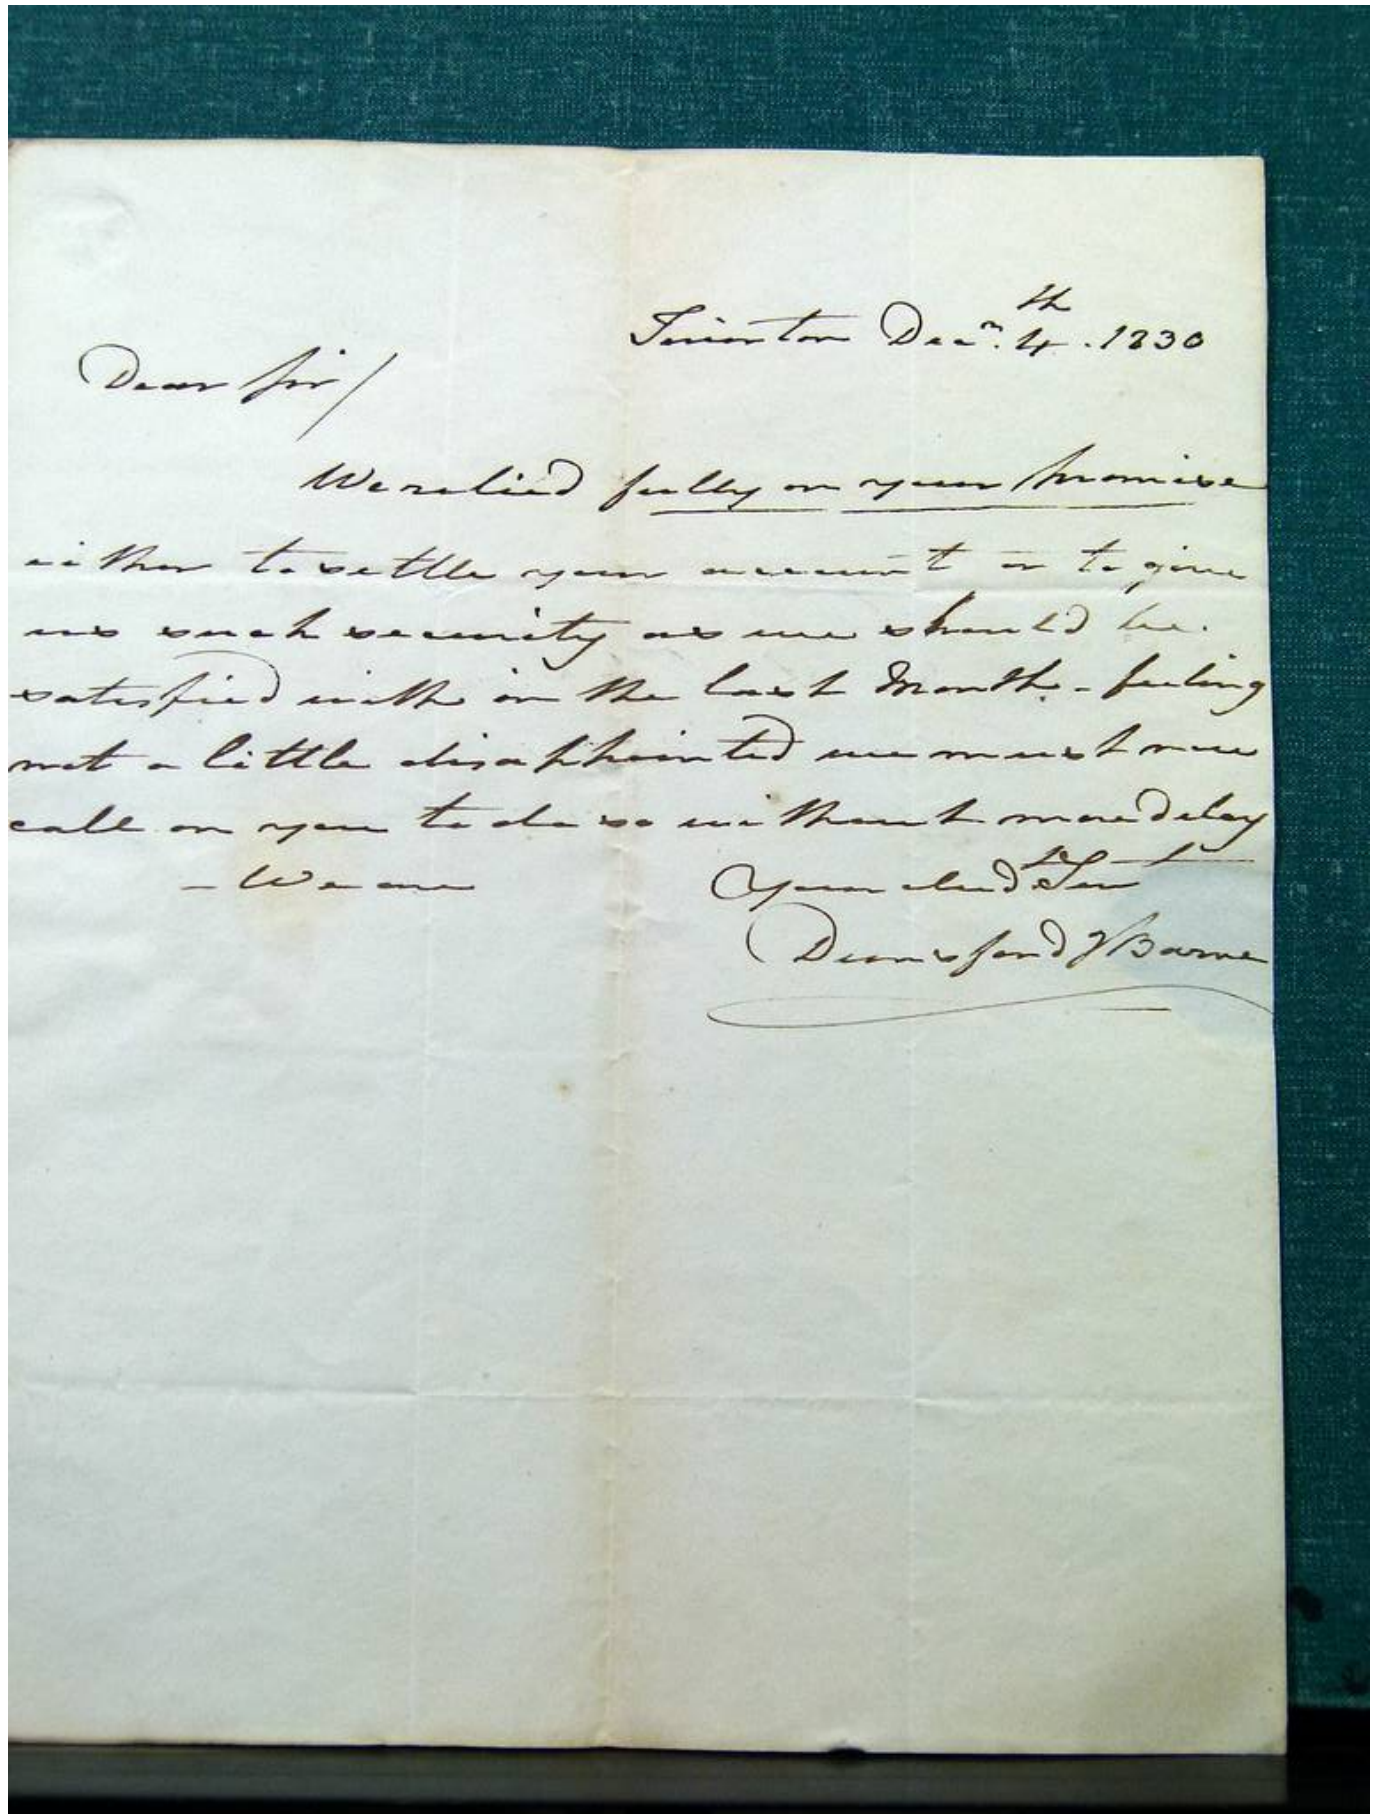 Tiverton Decr. 4th. 1830
Dear Sir/
We relied fully on your promise
either to settle your account or to give
us such security as we should be.
satisfied with in the last Month. - feeling
not a little disappointed we must now
call on you to do so without more delay
- We are Your obedt Servt
Dunsford & Barne